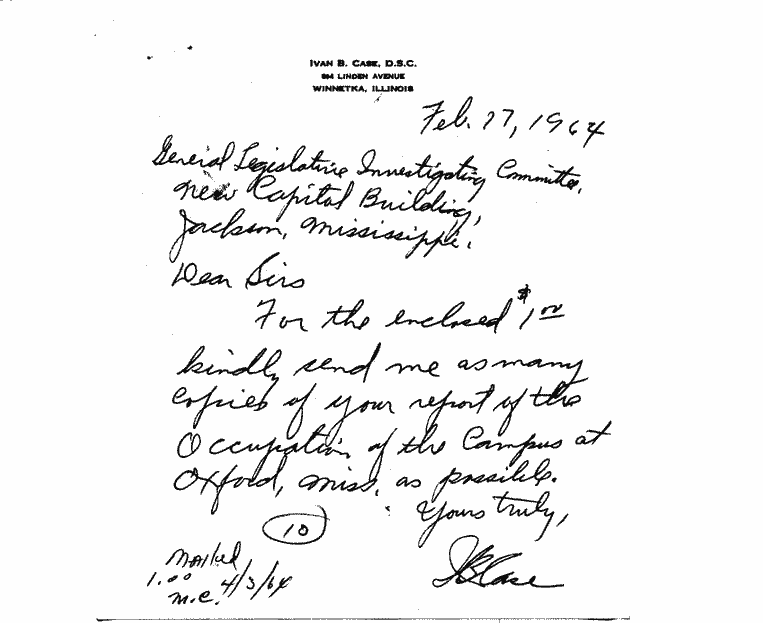 IVAN B. CASE, D.S.C.
LINDEN AVENUE
WINNETKA, ILLINOIS
Feb. 27, 1964
General Legislative Investigating Committee,
New Capitol Building,
Jackson, Mississippi.
Dear Sirs
For the enclosed $1.00
kindly send me as many
copies of your report of the
Occupation of the Campus at
Oxford, Miss, as possible.
Yours truly,
IBCase
10
Mailed
1.00 4/3/64
M.C.